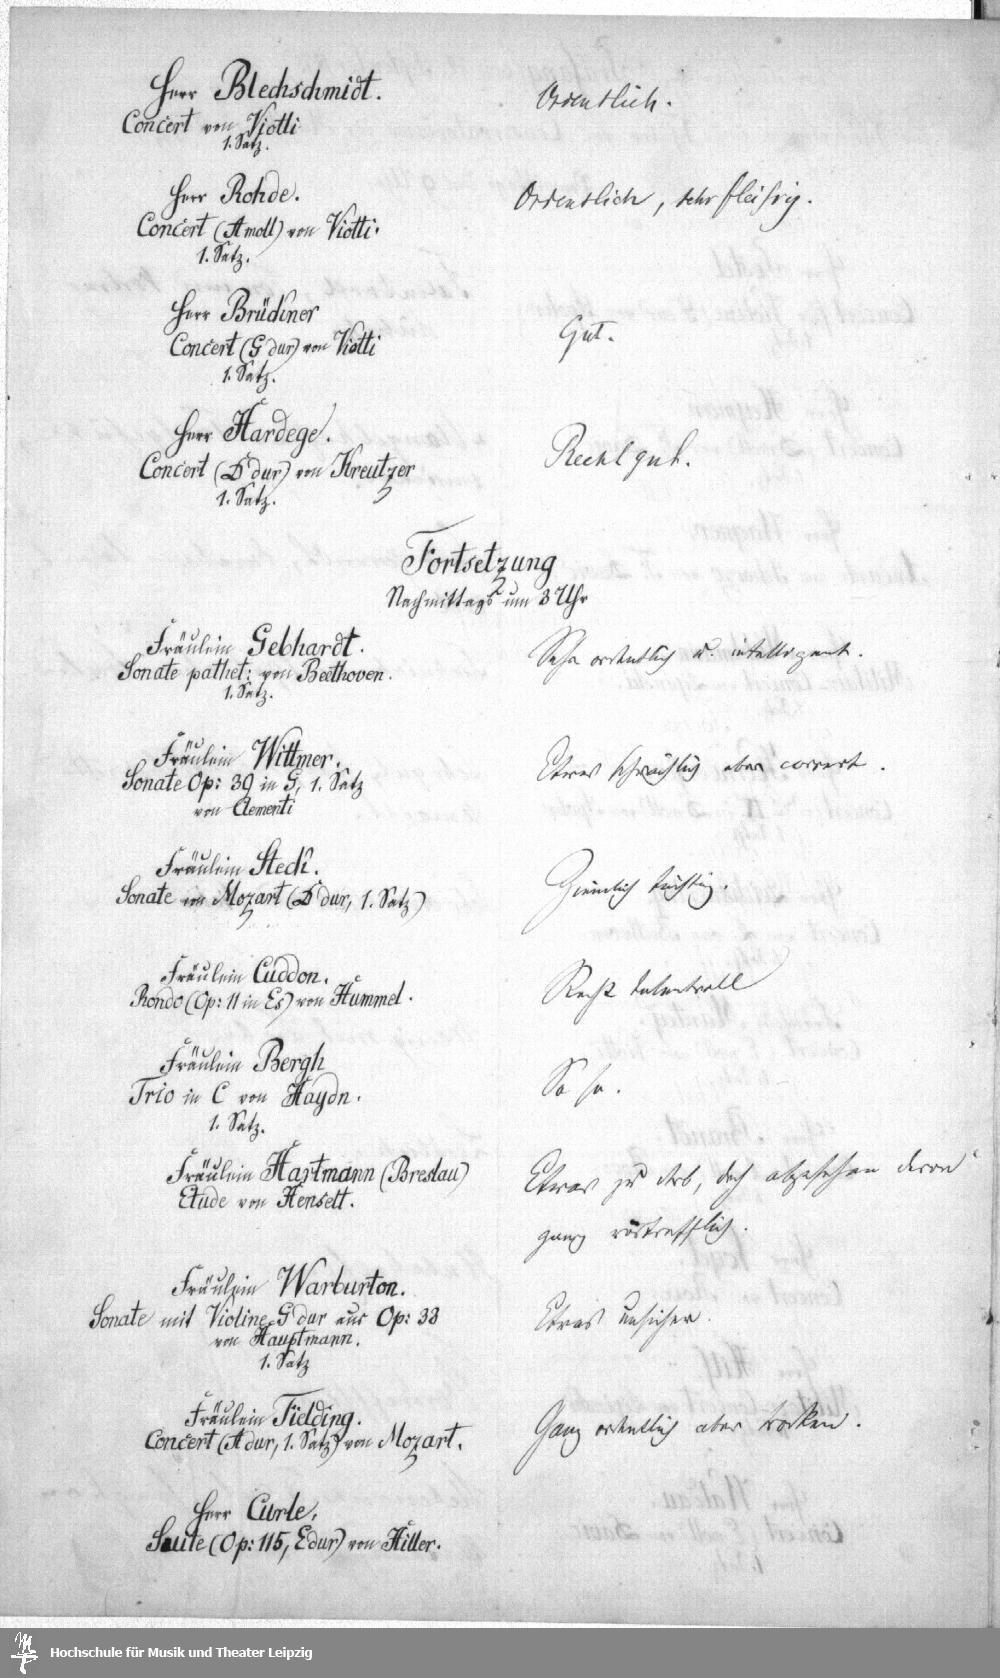 Herr Blechschmidt.
Ordentlich.
Concert von Viotti
1. Satz.
Herr Rohde.
Ordentlich, sehr fleißig.
Concert (A moll) von Viotti.
1. Satz.
Herr Brückner
Gut.
Concert (G dur) von Viotti
1. Satz.
Herr Hardege.
Recht gut.
Concert (D dur) von Kreutzer
1. Satz.
Fortsetzung
Nachmittags um 3 Uhr
Fräulein Gebhardt.
Sehr ordentlich u. intelligent.
Sonate pathet: von Beethoven.
1. Satz.
Fräulein Wittmer.
Etwas schwächlich aber correct.
Sonate Op: 39 in G, 1. Satz
von Clementi
Fräulein Steck.
Ziemlich tüchtig.
Sonate von Mozart (D dur, 1. Satz)
Fräulein Cuddon.
Recht talentvoll
Rondo (Op: 11 in Es) von Hummel.
Fräulein Bergh
So so.
Trio in C von Haydn.
1. Satz.
Fräulein Hartmann (Breslau)
Etwas zu derb, doch abgesehen davon
Etude von Henselt.
ganz vortrefflich.
Fräulein Warburton.
Sonate mit Violine G dur aus Op: 33
Etwas unsicher.
von Hauptmann.
1. Satz
Fräulein Fielding.
Ganz ordentlich aber trocken.
Concert (A dur, 1. Satz) von Mozart.
Herr Curle.
Suite (Op: 115, E dur) von Hiller.
Hochschule für Musik und Theater Leipzig